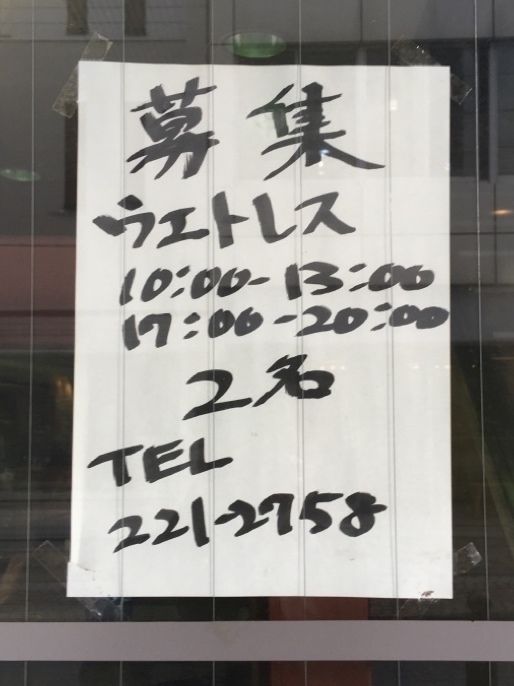 募集
ウエトレス
10:00-13:00
17:00-20:00
2名
TEL
221-2758